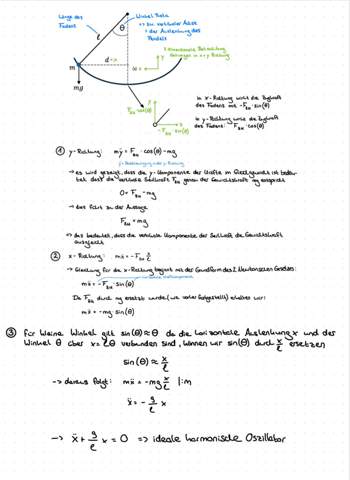 Länge des
Fadens
Winkel Theta
-> zur vertikalen Achse
= der Auslenkung des
Pendels
l
θ
m
d = x
mg
y
x
F_Zu cos(θ)
-F_Zu · sin(θ)
in x-Richtung wirkt die Zugkraft
des Fadens mit -F_Zu · sin(θ)
in y-Richtung wirkt die Zugkraft
des Fadens: F_Zu · cos(θ)
① y-Richtung: mÿ = F_Zu · cos(θ) - mg
-> es wird gezeigt, dass die y-Komponente der Kräfte im Gleichgewicht ist
dass die vertikale Seilkraft F_Zu genau der Gewichtskraft mg entspricht
0 = F_Zu - mg
-> das führt zu der Aussage
F_Zu = mg
-> das bedeutet, dass die vertikale Komponente der Seilkraft die Gewichtskraft
ausgleicht
② x-Richtung: mẍ = -F_Zu x/l
-> Gleichung für die x-Richtung beginnt mit der Grundform des 2. Newtonschen Gesetzes:
mẍ = -F_Zu · sin(θ)
Da F_Zu durch mg ersetzt wurde (wie vorher festgestellt) erhalten wir:
mẍ = -mg sin(θ)
③ Für kleine Winkel gilt sin(θ) ≈ θ da die horizontale Auslenkung x und der
Winkel θ über x = lθ verbunden sind, können wir sin(θ) durch x/l ersetzen
sin(θ) ≈ x/l
-> daraus folgt: mẍ = -mg x/l |:m
ẍ = -g/l x
-> ẍ + g/l x = 0 => ideale harmonische Oszillator